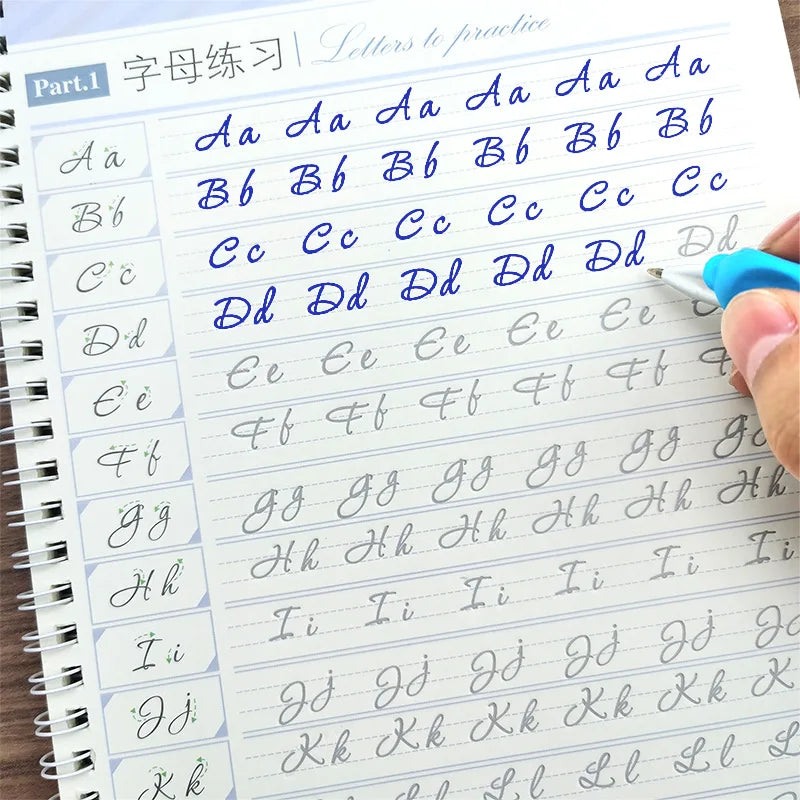 Part.1 字母练习 Letters to practice
Aa Aa Aa Aa Aa Aa Aa
Bb Bb Bb Bb Bb Bb Bb
Cc Cc Cc Cc Cc Cc Cc
Dd Dd Dd Dd Dd Dd Dd
Ee Ee Ee Ee Ee Ee
Ff Ff Ff Ff Ff Ff F
Gg Gg Gg Gg Gg Gg Gg
Hh Hh Hh Hh Hh Hh Hh
Ii Ii Ii Ii Ii Ii Ii
Jj Jj Jj Jj Jj Jj J
Kk Kk Kk Kk Kk Kk K
Ll Ll Ll L